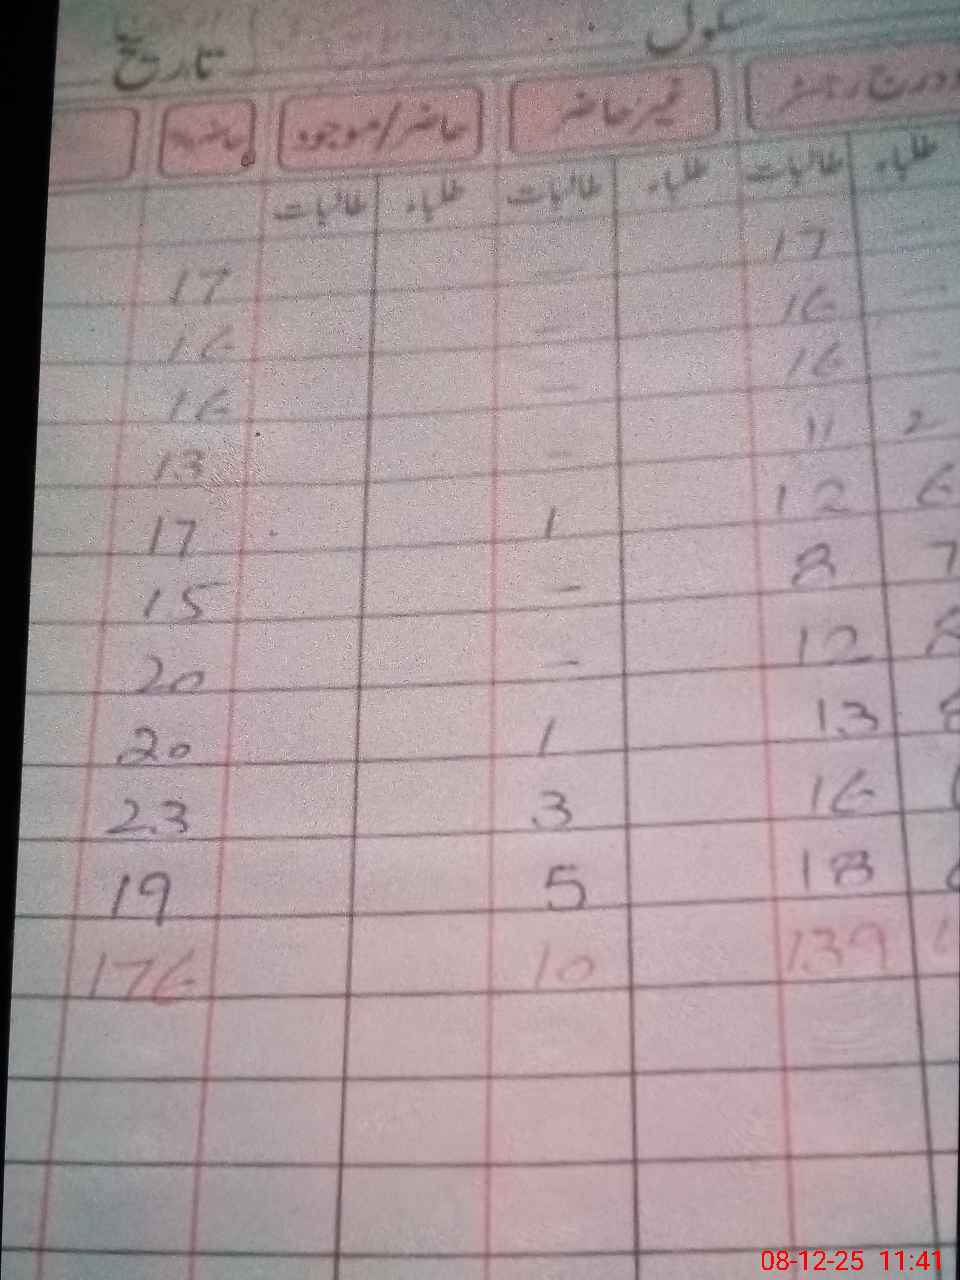 سکول تاریخ
درج رجسٹر غیر حاضر حاضر/موجود حاضر
طلباء طالبات طلباء طالبات طلباء طالبات
17 - 17
16 - 16
16 - 16
2 11 - 13
6 12 1 17
7 8 - 15
8 12 - 20
8 13 1 20
16 3 23
18 5 19
139 10 176
08-12-25 11:41